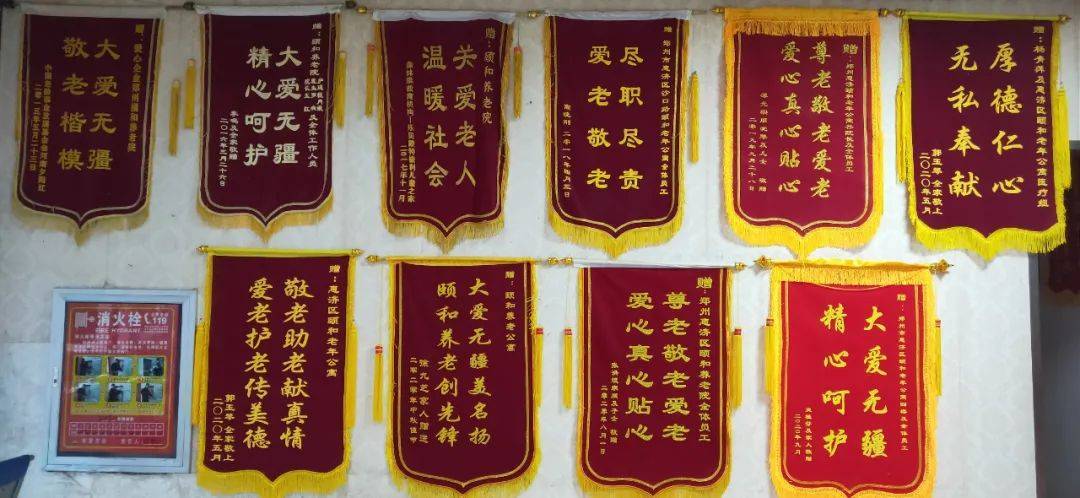 赠：爱心企业郑州颐和养老院
大爱无疆
敬老楷模
中国老龄事业发展基金会河南夕阳红
二〇一五年五月二十三日
赠：颐和养老院
及全体工作人员
大爱无疆
精心呵护
及全家敬赠
二〇一六年三月二十六日
赠：颐和养老院
关爱老人
温暖社会
二〇一七年十一月
赠：郑州市惠济区沙口路颐和老年公寓全体员工
尽职尽责
爱老敬老
二〇一八年
赠：郑州惠济颐和老年公寓院长及全体员工
尊老敬老爱老
爱心真心贴心
敬赠
赠：杨青萍及惠济区颐和老年公寓医疗组
厚德仁心
无私奉献
郭玉琴 全家敬上
二〇二〇年五月
消火栓 119
FIRE HYDRANT
赠：惠济区颐和老年公寓
敬老助老献真情
爱老护老传美德
郭玉琴 全家敬上
二〇二〇年五月
赠：颐和养老公寓
大爱无疆美名扬
颐和养老创先锋
家人赠送
二零二零年中秋佳节
赠：郑州惠济区颐和养老院全体员工
尊老敬老爱老
爱心真心贴心
敬赠
二零二零年八月一日
赠：郑州市惠济区颐和老年公寓
及全体员工
大爱无疆
精心呵护
及家人敬赠
二〇二〇年九月